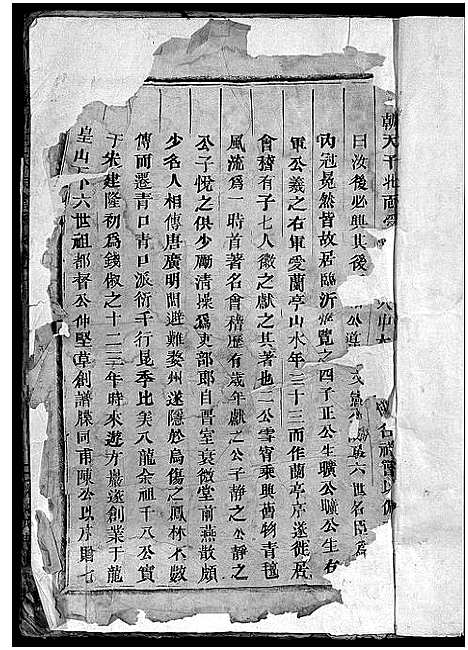 朝天子北面受
曰汝後必興其後公導六世名臣
內冠冕然皆故居臨沂覽之四子正公生曠公曠公生右
軍公羲之右軍愛蘭亭山水年三十三而作蘭亭序遂徙居
會稽有子七人徽之獻之其著也二公雪宵乘興舊物青氊
風流爲一時首著名會稽歷有歲年獻之公子靜之公靜之
公子悅之俱少勵清操爲吏部郎自晋室衰微堂前燕散頗
少名人相傳唐廣明間避難婺州遂隱於烏傷之鳳林不數
傳而遷青口青口派衍千行昆季比美八龍余祖千八公實
于宋建隆初爲錢俶之十二三年時來遊方巖遂創業于龍
皇山下六世祖都督公仲堅草創譜牒同甫陳公以序贈七
名禮實以